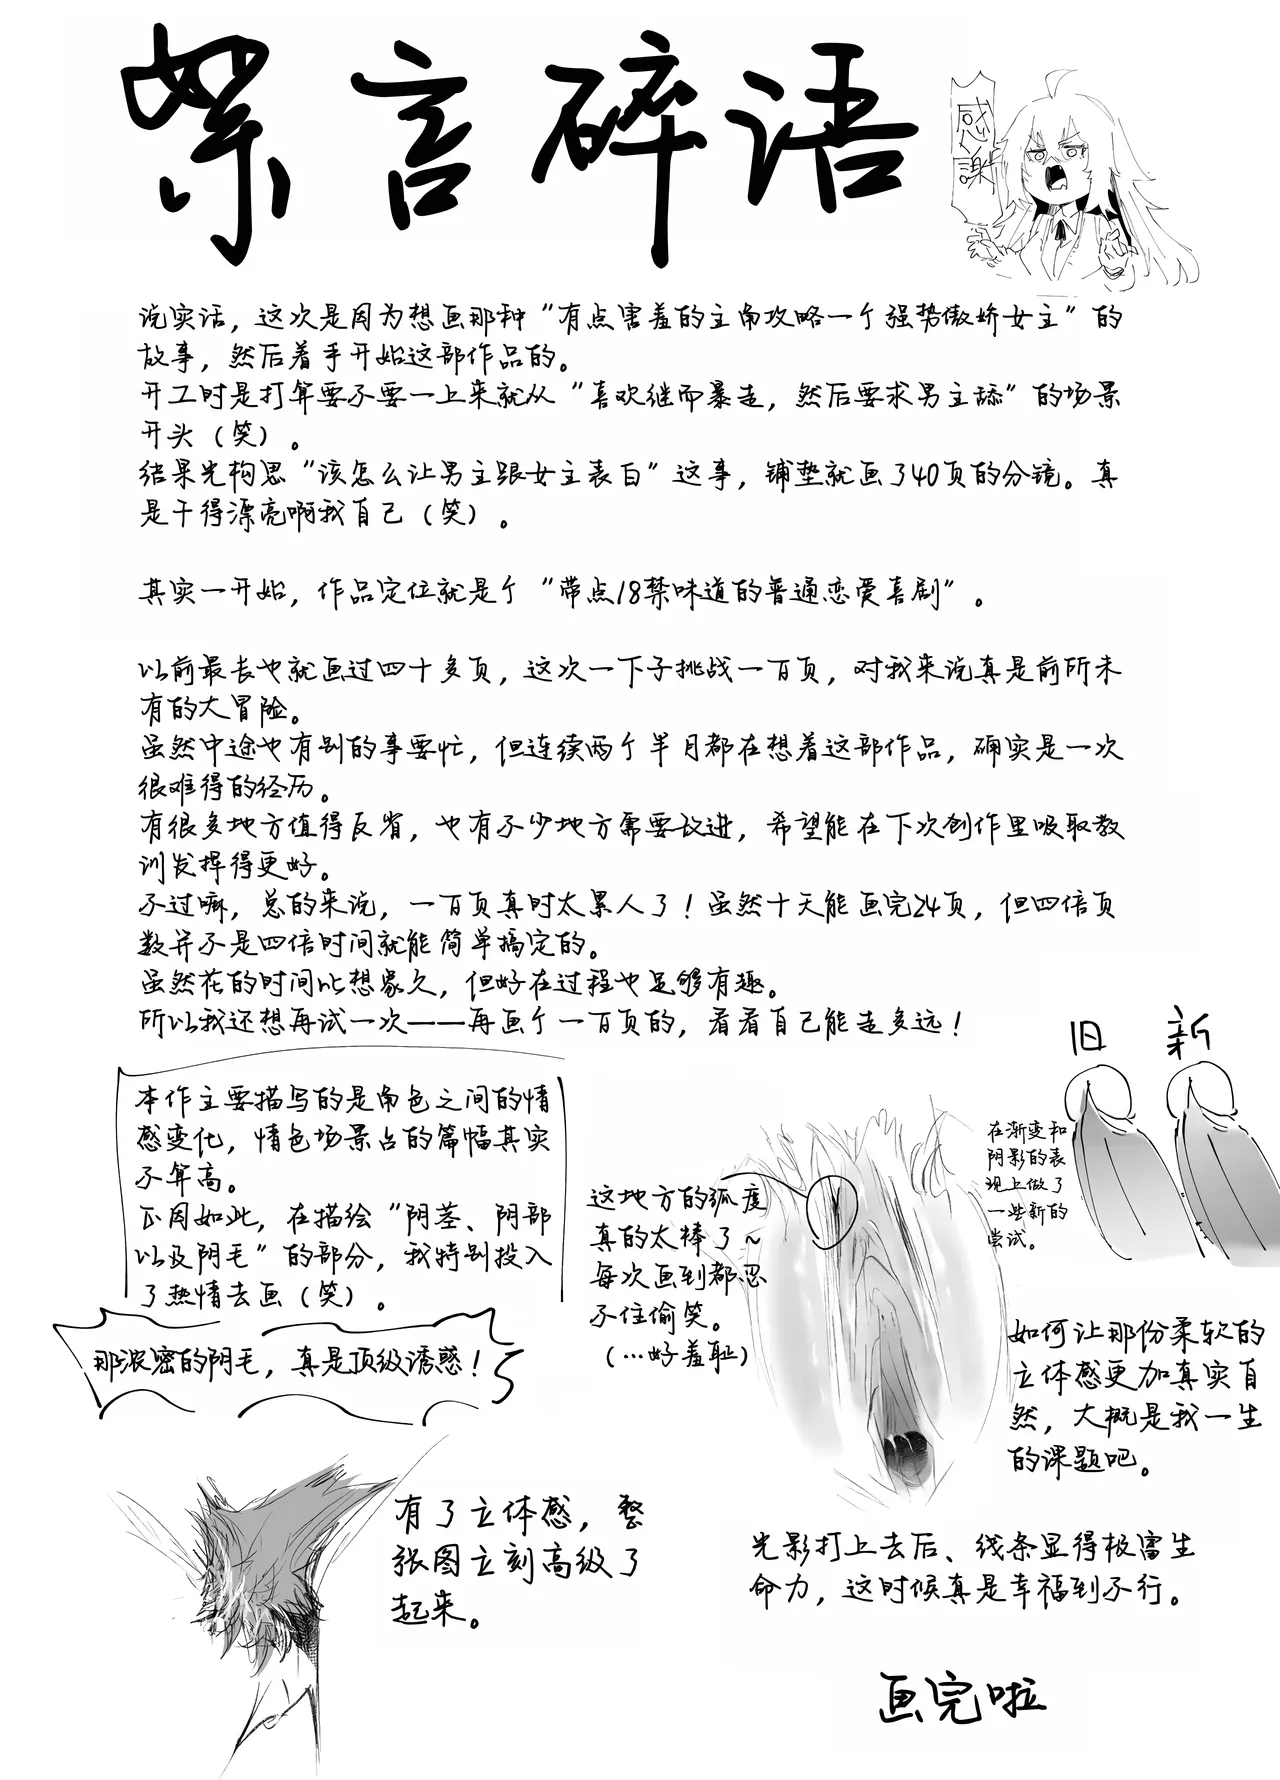 絮言碎语
感謝
说实话，这次是因为想画那种“有点害羞的主角攻略一个强势傲娇女主”的
故事，然后着手开始这部作品的。
开工时是打算要不要一上来就从“喜欢继而暴走，然后要求男主舔”的场景
开头（笑）。
结果光构思“该怎么让男主跟女主表白”这事，铺垫就画了40页的分镜。真
是干得漂亮啊我自己（笑）。
其实一开始，作品定位就是个“带点18禁味道的普通恋爱喜剧”。
以前最长也就画过四十多页，这次一下子挑战一百页，对我来说真是前所未
有的大冒险。
虽然中途也有别的事要忙，但连续两个半月都在想着这部作品，确实是一次
很难得的经历。
有很多地方值得反省，也有不少地方需要改进，希望能在下次创作里吸取教
训发挥得更好。
不过嘛，总的来说，一百页真时太累人了！虽然十天能画完24页，但四倍页
数并不是四倍时间就能简单搞定的。
虽然花的时间比想象久，但好在过程也足够有趣。
所以我还想再试一次——再画个一百页的，看看自己能走多远！
本作主要描写的是角色之间的情
感变化，情色场景占的篇幅其实
不算高。
正因如此，在描绘“阴茎、阴部
以及阴毛”的部分，我特别投入
了热情去画（笑）。
那浓密的阴毛，真是顶级诱惑！
有了立体感，整
张图立刻高级了
起来。
这地方的弧度
真的太棒了~
每次画到都忍
不住偷笑。
（…好羞耻）
旧 新
在渐变和
阴影的表
现上做了
一些新的
尝试。
如何让那份柔软的
立体感更加真实自
然，大概是我一生
的课题吧。
光影打上去后、线条显得极富生
命力，这时候真是幸福到不行。
画完啦